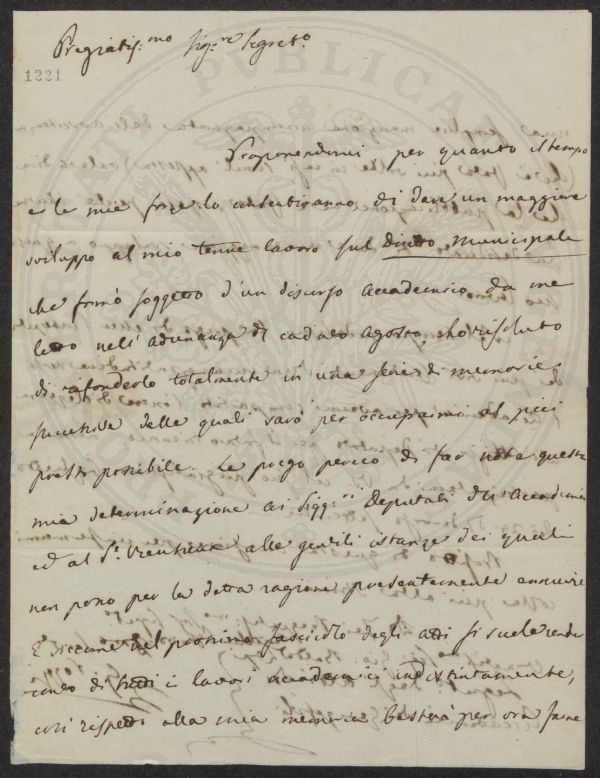 Pregiatis:mo Sig:re Segret:o
1221
PUBLICA
Proponendomi per quanto il tempo
e le mie forze lo consentiranno di dare un maggiore
sviluppo al mio tenue lavoro sul Diritto Municipale
che formò soggetto d'un discorso Accademico da me
letto nell'adunanza di caduto Agosto, ho risoluto
di rifonderlo totalmente in una serie di memorie
successive delle quali sarò per occuparmi al più
presto possibile. La prego perciò di far nota questa
mia determinazione ai Sigg:ri Deputati dell'Accademia
ed al Sr. alle gentili istanze dei quali
non posso per la detta ragione presentemente annuire
E siccome nel prossimo fascicolo degli atti si suole render
conto di tutti i lavori accademici indistintamente,
così rispetto alla mia memoria basterà per ora farne